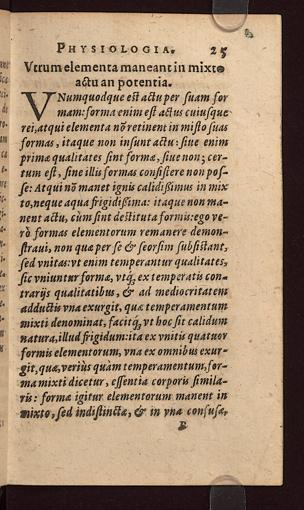 PHYSIOLOGIA. 25
Vtrum elementa maneant in mixto
actu an potentia.
VNumquodque est actu per suam for
mam: forma enim est actus cuiusque
rei, atqui elementa nõ retinent in misto suas
formas, itaque non insunt actu: siue enim
primæ qualitates sint formæ, siue non; cer-
tum est, sine illis formas consistere non pos-
se: Atqui nõ manet ignis calidißimus in mix
to, neque aqua frigidißima: itaque non ma-
nent actu, cùm sint destituta formis: ego ve-
rò formas elementorum remanere demon-
straui, non quæ per se & seorsim subsistant,
sed vnitas: vt enim temperantur qualitates,
sic vniuntur formæ, vtq́; ex temperatis con-
trarijs qualitatibus, & ad mediocritatem
adductis vna exurgit, quæ temperamentum
mixti denominat, facitq́;, vt hoc sit calidum
natura, illud frigidum: ita ex vnitis quatuor
formis elementorum, vna ex omnibus exur-
git, quæ, veriùs quàm temperamentum, for-
ma mixti dicetur, essentia corporis simila-
ris: formæ igitur elementorum manent in
mixto, sed indistinctæ, & in vna confusæ,
B